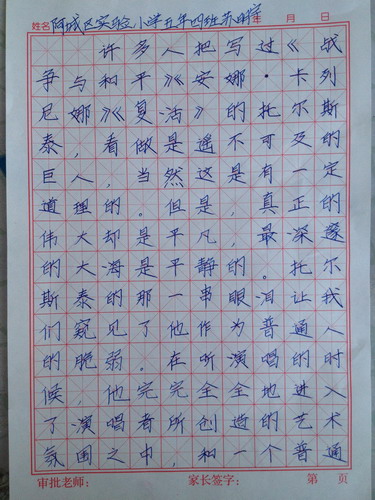 姓名阿城区实验小学五年四班苏 年 月 日
许多人把写过《战
争与和平》《安娜·卡列
尼娜》《复活》的托尔斯
泰,看做是遥不可及的
巨人,当然这是有一定
道理的。但是,真正的
伟大却是平凡,最深邃
的大海是平静的。托尔
斯泰的那一串眼泪让我
们窥见了他作为普通人
的脆弱。在听演唱的时
候,他完完全全地进入
了演唱者所创造的艺术
氛围之中,和一个普通
审批老师: 家长签字: 第 页